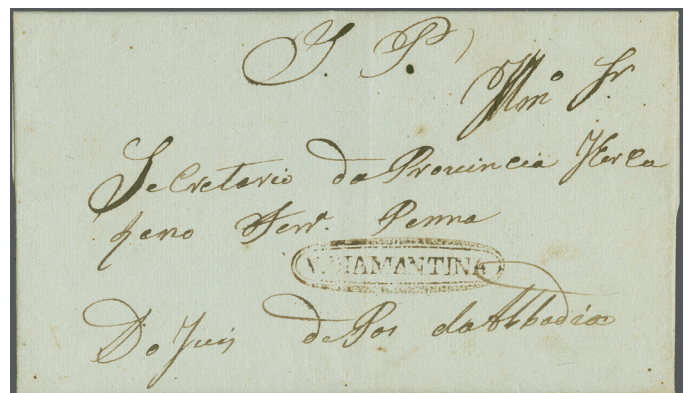 S. P.
Illmo Sr
Secretario da Provincia Hercu
lano Ferra Penna
V. DIAMANTINA
Do Juis de Pas da Abbadia